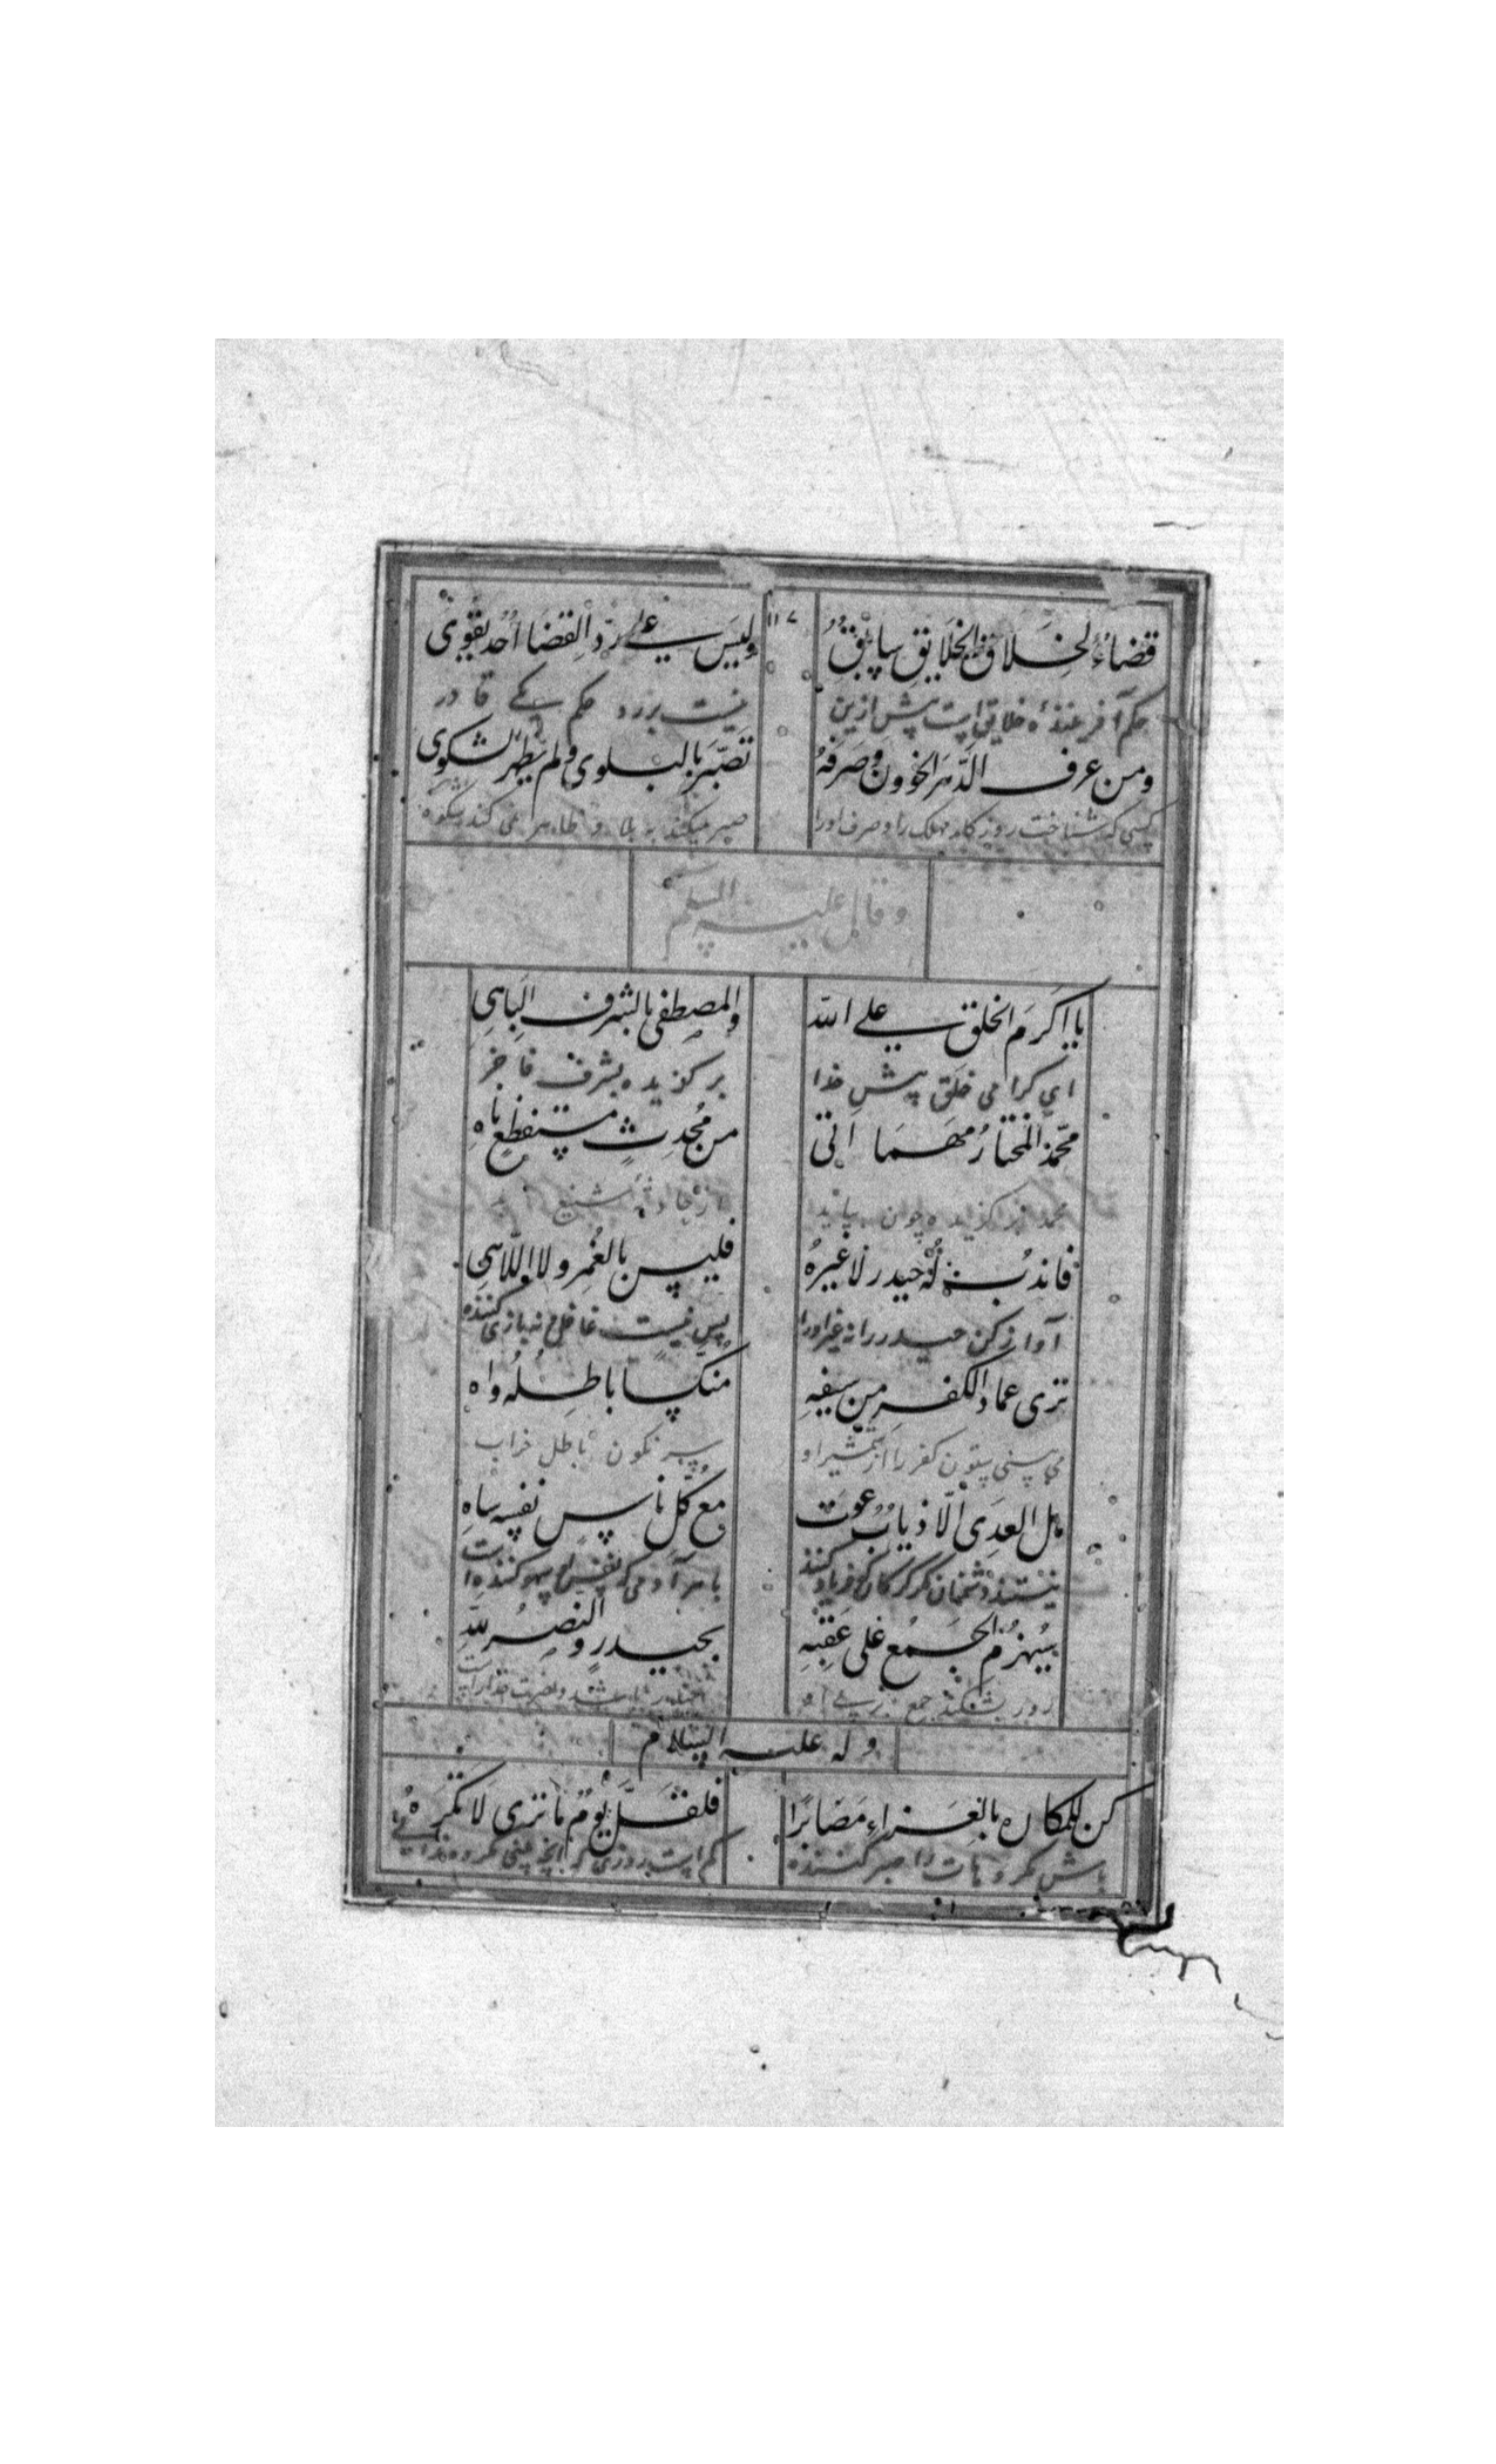 قضاءُ لخلاق الخلایق سابقُ ولیس علی ردّ القضا احد یقوی
حکم آفرینندهٔ خلایق است پیش ازین نیست بررد حکم کسی قادر
ومن عرف الدّهر الخوون وصرفهُ تصبّر بالبلوی ولم یظهر لشکوی
کسی که شناخت روزکار مهلک را و صرف اورا صبر میکند به بلا و ظاهر نمی کند شکوه
وقال علیه السلم
یا اکرم الخلق علی الله والمصطفی بالشرف الباهی
ای کرامی خلق پیش خدا برکزیده بشرف فاخر
محمّد المختارُ مهما اتی من مُحدِثٍ مستفظعٍ ناهِ
محمد برکزیده چون بیاید از حادثهٔ شنیع
فاندُب لهُ حیدر لا غیرهُ فلیس بالغُمرِ ولا اللّاهی
آواز کن حیدر را نه غیر اورا پس نیست غافل و نه بازی کننده
تری عماد الکفر من سیفهِ منکسا باطلُهُ واه
می بینی ستون کفر را از شمشیر او سر نکون باطل خراب
هل العدی الّا ذیابٌ عوت مع کلّ ناسٍ نفسه ساهِ
نیستند دشمنان مکر کرکان که فریاد کنند با هر آدمی که نفس او سهو کننده است
سیُهزمُ الجمعُ علی عقبهِ بحیدرٍ والنصرُ للّهِ
زود بشکند جمع بر پی او
وله علیه السلام
کن للمکاره بالعزاءِ مصابرًا فلقلّ یومٌ ما تری لا تکرهُ
باش مکروهات را صبر کننده کم است روزی که آنچه بینی مکروه نداری